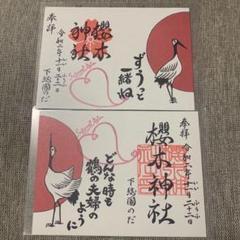 奉拝
櫻木
神社
令和二年十一月二十二日
下総國のだ
ずうっと
一緒ね
奉拝
櫻木神社
令和二年十一月二十二日
下総國のだ
どんな時も
鶴の夫婦の
ように